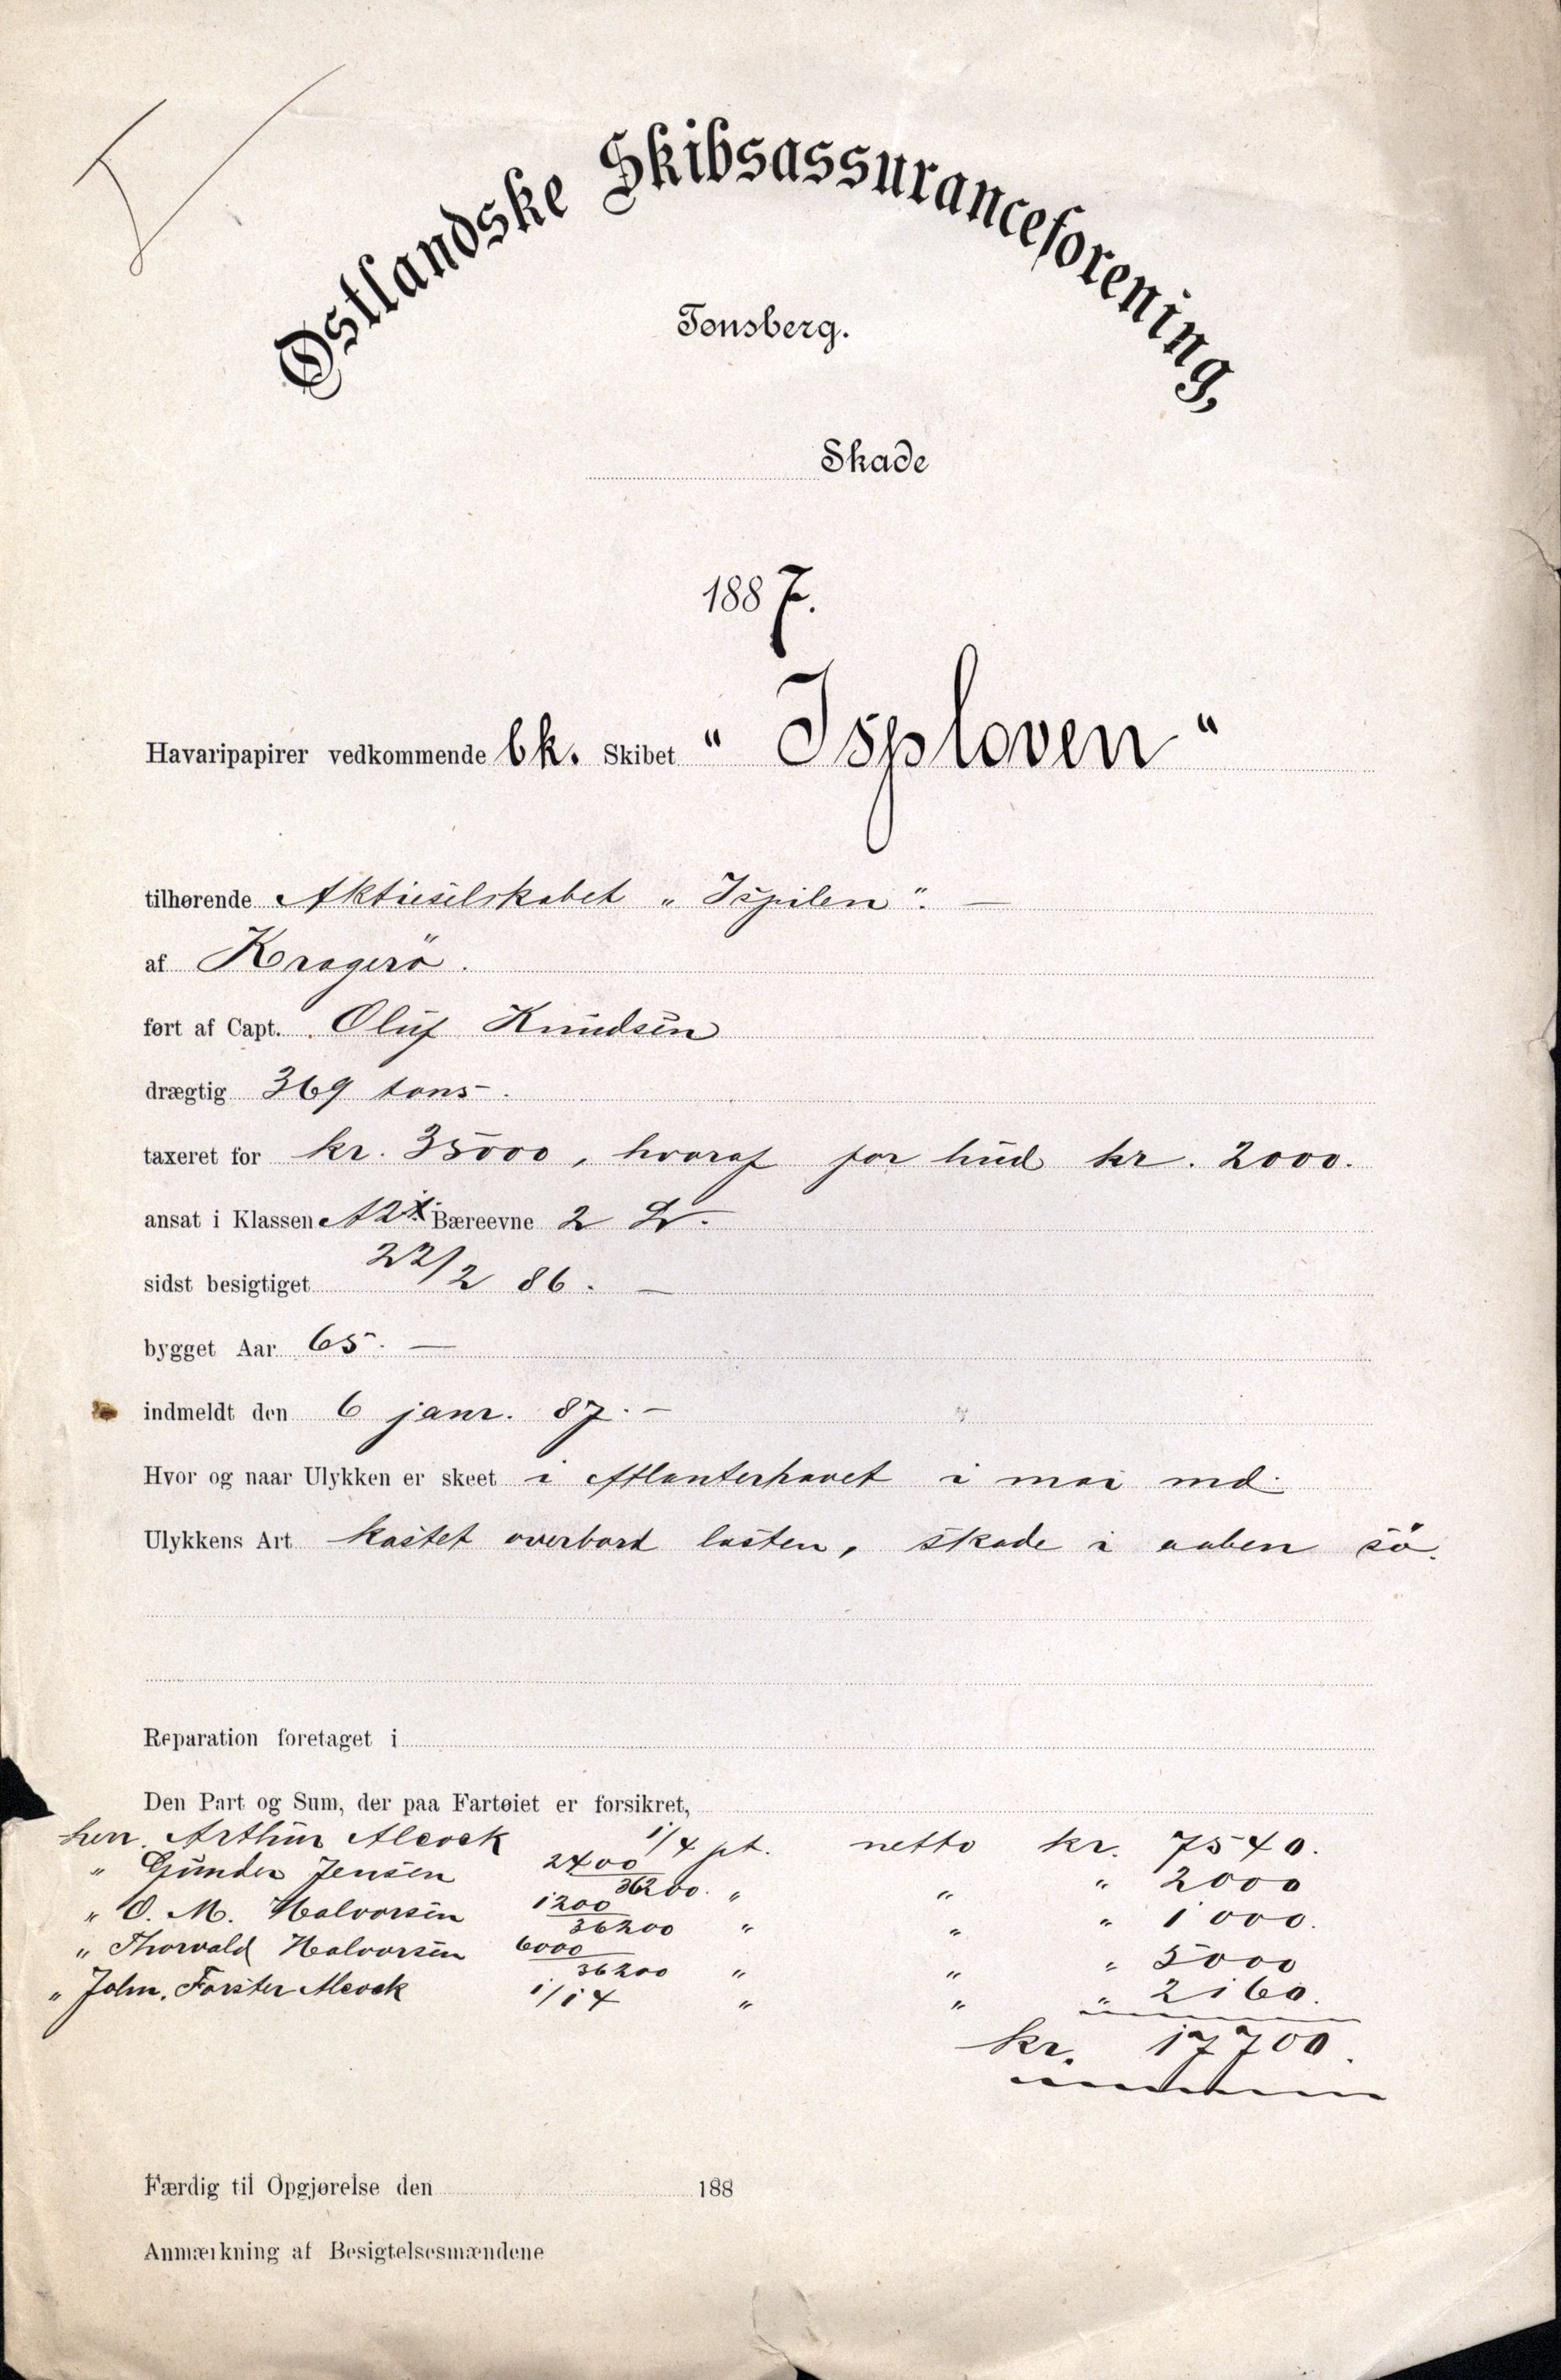 Østlandske Skibsassuranceforening,
Tønsberg.
Skade
1887.
Havaripapirer vedkommende bk. Skibet „ Isploven "
tilhørende Aktieselskabet „ Ispilen ". —
af Kragerö.
ført af Capt. Oluf Knudsen
drægtig 369 tons.
taxeret for kr. 35000, hvoraf for hud kr. 2000.
ansat i Klassen A2 Bæreevne 2
sidst besigtiget 22/2 86. —
bygget Aar 65. —
indmeldt den 6 janr. 87. —
Hvor og naar Ulykken er skeet i Atlanterhavet i mai md.
Ulykkens Art kastet overbord lasten, skade i aaben sö.
Reparation foretaget i
Den Part og Sum, der paa Fartøiet er forsikret,
herr. Arthur Alcock 1/4 pt. netto kr. 7540.
„ Gunder Jensen 2400/36200. „ „ „ 2000
„ O. M. Halvorsen 1200/36200 „ „ „ 1000.
„ Thorvald Halvorsen 6000/36200 „ „ „ 5000
„ John. Forster Alcock 1/14 „ „ „ 2160.
kr. 17700.
Færdig til Opgjørelse den 188
Anmærkning af Besigtelsesmændene